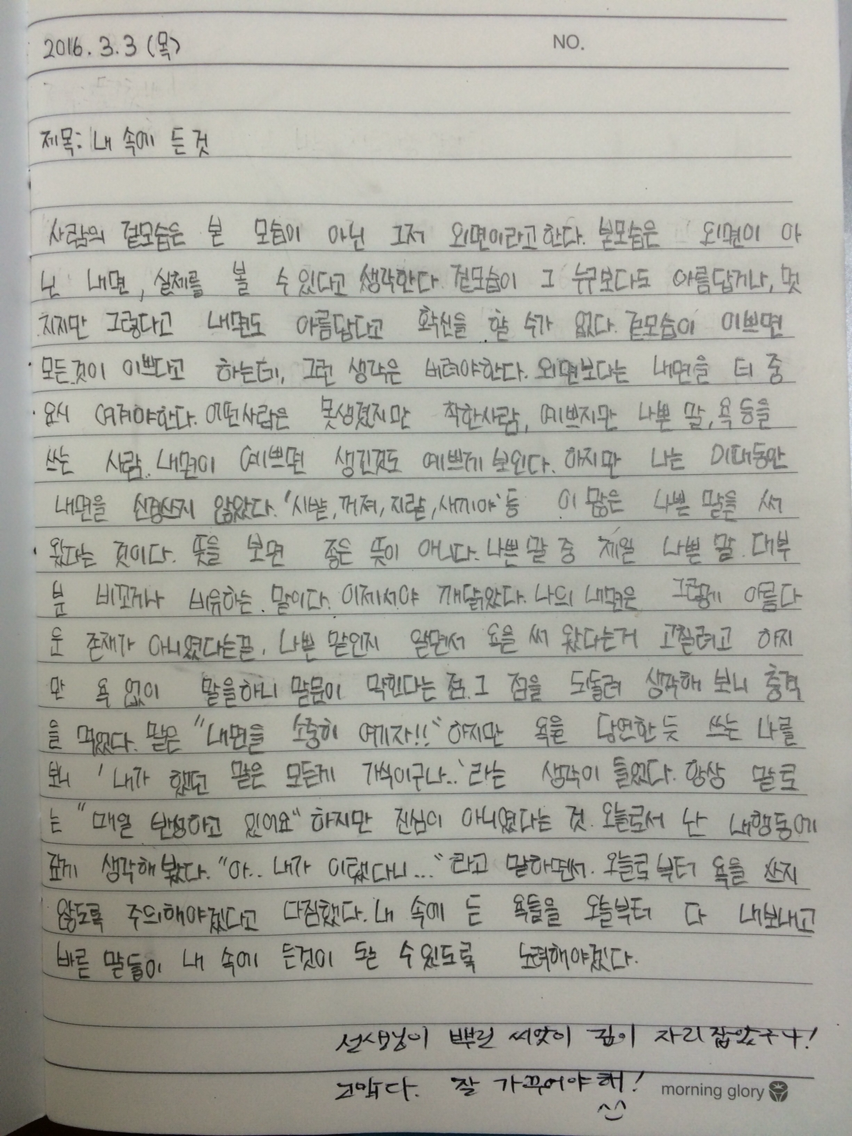 2016. 3. 3 (목)
NO.
제목: 내 속에 든 것
사람의 겉모습은 본 모습이 아닌 그저 외면이라고 한다. 본모습은 외면이 아
닌 내면, 실체를 볼 수 있다고 생각한다. 겉모습이 그 누구보다도 아름답거나, 멋
지지만 그렇다고 내면도 아름답다고 확신을 할 수가 없다. 겉모습이 이쁘면
모든것이 이쁘다고 하는데, 그런 생각은 버려야한다. 외면보다는 내면을 더 중
요시 여겨야한다. 어떤사람은 못생겼지만 착한사람, 예쁘지만 나쁜 말, 욕 등을
쓰는 사람. 내면이 예쁘면 생긴것도 예쁘게 보인다. 하지만 나는 여태동안
내면을 신경쓰지 않았다. '시발, 꺼져, 지랄, 새끼야' 등 이 많은 나쁜 말을 써
왔다는 것이다. 뜻을 보면 좋은 뜻이 아니다. 나쁜 말 중 제일 나쁜 말. 대부
분 비꼬거나 비유하는 말이다. 이제서야 깨달았다. 나의 내면은 그렇게 아름다
운 존재가 아니였다는걸, 나쁜 말인지 알면서 욕을 써 왔다는거 고칠려고 하지
만 욕 없이 말을하니 말문이 막힌다는 점. 그 점을 되돌려 생각해 보니 충격
을 먹었다. 말은 "내면을 소중히 여기자!!" 하지만 욕을 당연한 듯 쓰는 나를
보니 '내가 했던 말은 모든게 가식이구나..' 라는 생각이 들었다. 항상 말로
는 "매일 반성하고 있어요" 하지만 진심이 아니였다는 것. 오늘로서 난 내행동에
깊게 생각해 봤다. "아.. 내가 이랬다니..." 라고 말하면서. 오늘로부터 욕을 쓰지
않도록 주의해야겠다고 다짐했다. 내 속에 든 욕들을 오늘부터 다 내보내고
바른 말들이 내 속에 든것이 되는 수 있도록 노력해야겠다.
선생님이 뿌린 씨앗이 깊이 자리잡았구나!
고맙다. 잘 가꾸어야 해!
morning glory